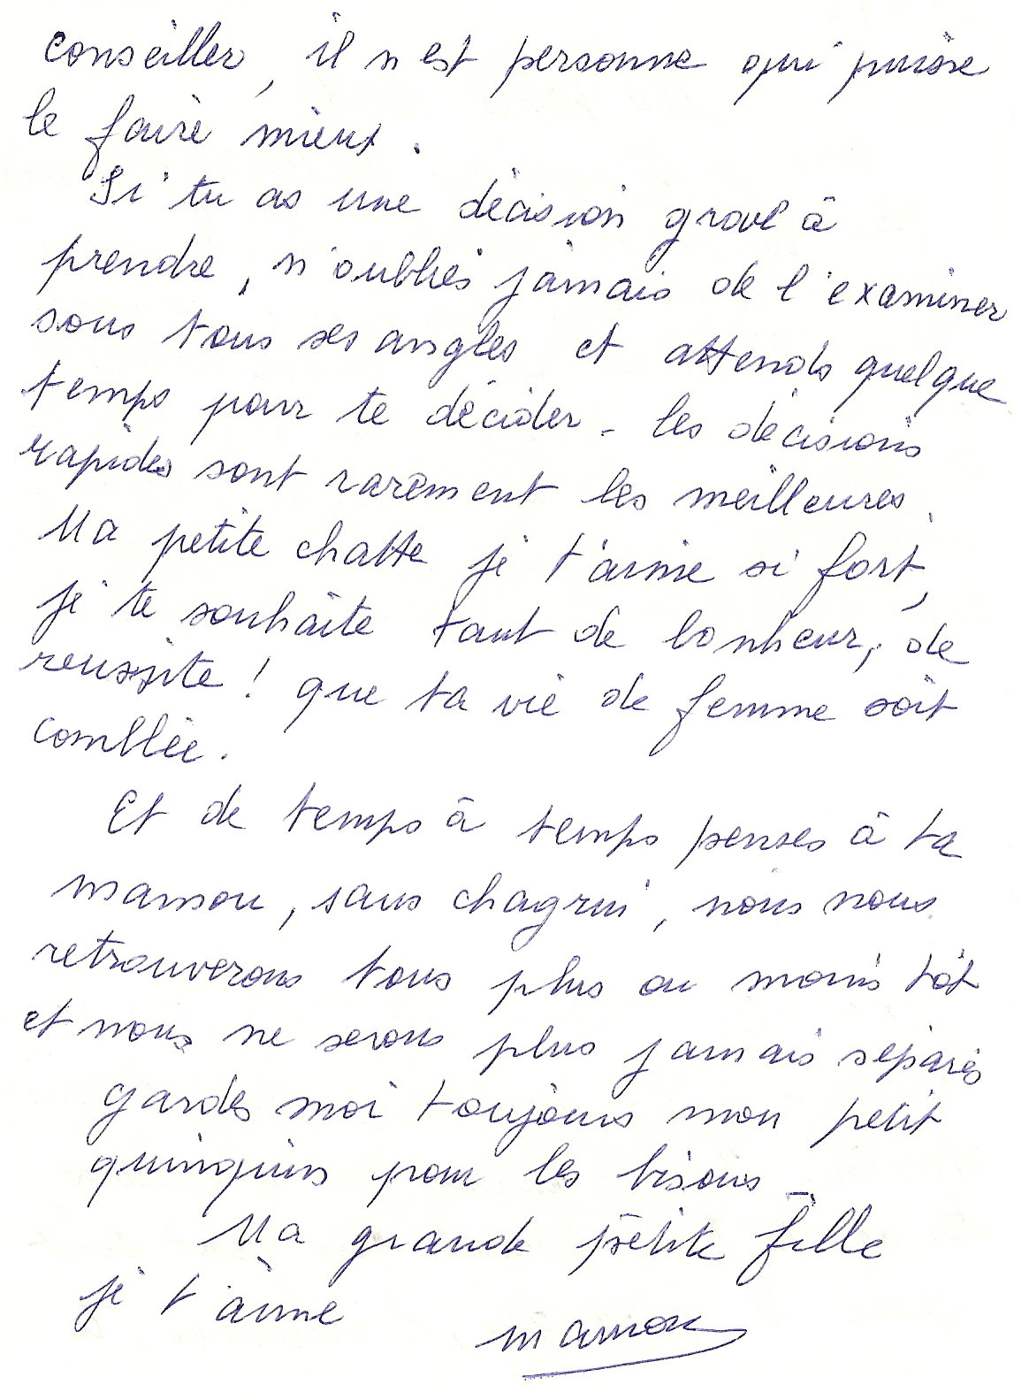 conseiller, il n'est personne qui puisse
le faire mieux.
Si tu as une décision grave à
prendre, n'oublies jamais de l'examiner
sous tous ses angles et attends quelque
temps pour te décider - les décisions
rapides sont rarement les meilleures.
Ma petite chatte je t'aime si fort,
je te souhaite tant de bonheur, de
reussite ! que ta vie de femme soit
comblée.
Et de temps à temps penses à ta
mamou, sans chagrin, nous nous
retrouverons tous plus ou moins tôt
et nous ne serons plus jamais séparés
gardes moi toujours mon petit
quinquin pour les bisous -
Ma grande petite fille
je t'aime
mamou